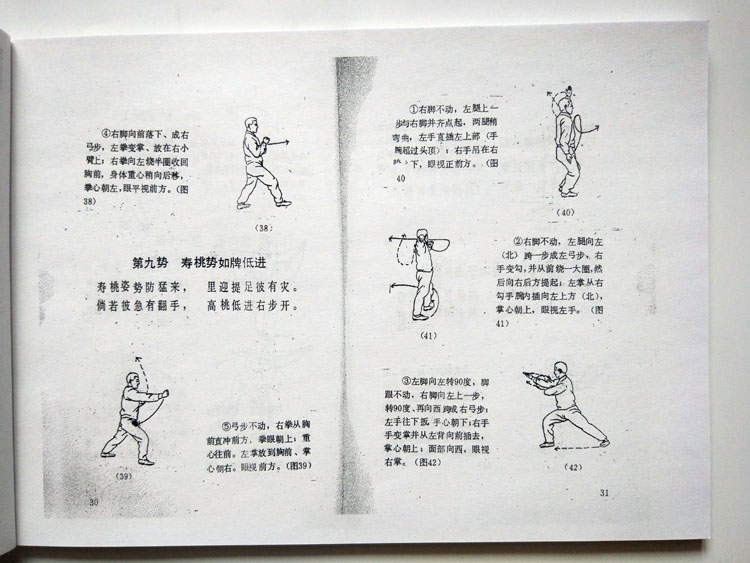 ④右脚向前落下、成右
弓步，左拳变掌、放在右小
臂上；右拳向左绕半圈收回
胸前，身体重心稍向后移，
拳心朝左，眼平视前方。（图
38）
（38）
第九势　寿桃势如牌低进
寿桃姿势防猛来，　里迎提足彼有灾。
倘若彼急有翻手，　高桃低进右步开。
（39）
⑤弓步不动，右拳从胸
前直冲前方，拳眼朝上；重
心往前。左掌放到胸前、掌
心朝右。眼视前方。（图39）
30
①右脚不动，左腿上一
步与右脚并齐点起，两腿稍
弯曲，左手直插左上部（手
腕超过头顶）；右手吊在右
下，眼视正前方。（图
40
（40）
（41）
②右脚不动，左腿向左
（北）跨一步成左弓步，右
手变勾，并从前绕一大圈，然
后向右后方提起；左掌从右
勾手腕内插向左上方（北），
掌心朝上，眼视左手。（图
41）
③左脚向左转90度，脚
跟不动，右脚向左上一步，
转90度、再向西跨成右弓步；
左手往下扳，手心朝下；右手
手变掌并从左背向前插去，
掌心朝上；面部向西，眼视
右掌。（图42）
（42）
31